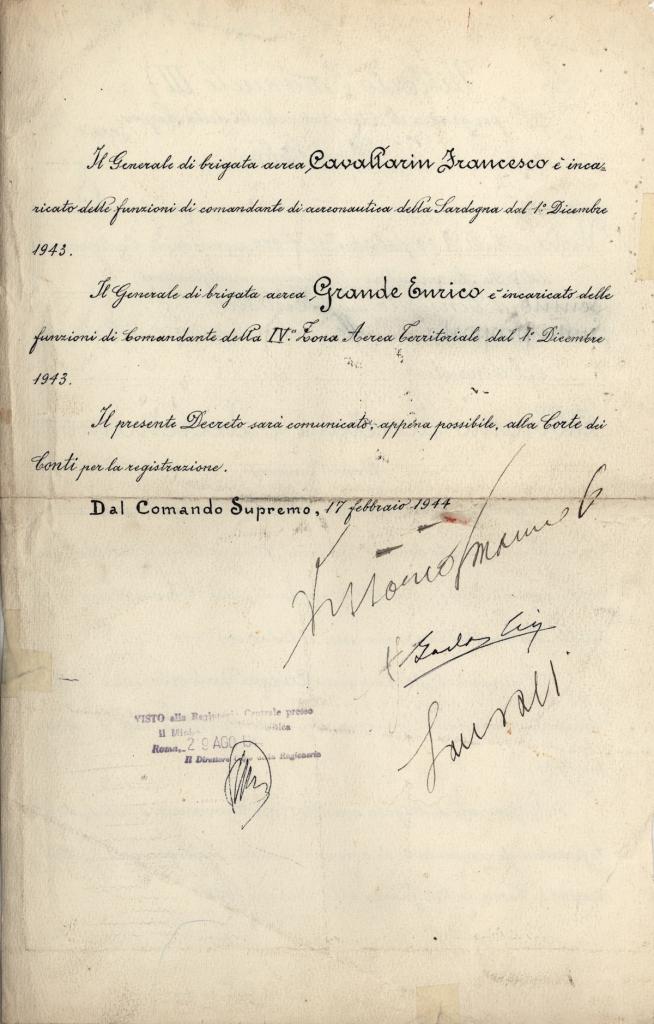 Il Generale di brigata aerea Cavallarin Francesco è inca=
ricato delle funzioni di comandante di aereonautica della Sardegna dal 1º Dicembre
1943.
Il Generale di brigata aerea Grande Enrico è incaricato delle
funzioni di Comandante della IV.ª Zona Aerea Territoriale dal 1º Dicembre
1943.
Il presente Decreto sarà comunicato, appena possibile, alla Corte dei
Conti per la registrazione.
Dal Comando Supremo, 17 febbraio 1944
Vittorio Emanuele
VISTO alla Centrale presso
il
Roma, 29 AGO
Il Direttore della Ragioneria